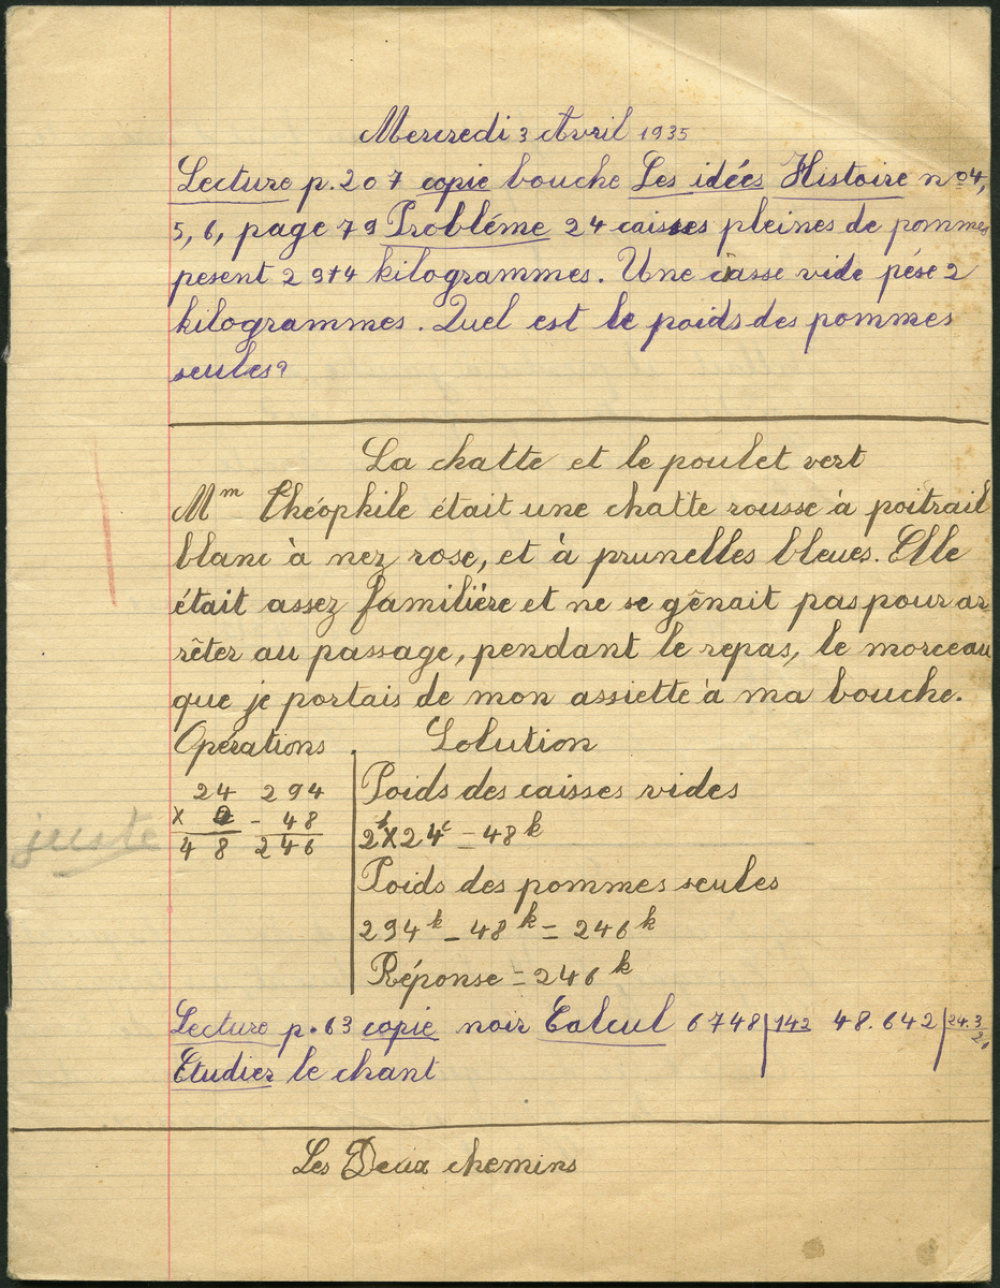 Mercredi 3 Avril 1935
Lecture p. 207 copie bouche Les idées Histoire nº 4,
5, 6, page 79 Probléme 24 caisses pleines de pommes
pesent 294 kilogrammes. Une caisse vide pése 2
kilogrammes. Quel est le poids des pommes
seules?
La chatte et le poulet vert
Mm Théophile était une chatte rousse à poitrail
blanc à nez rose, et à prunelles bleues. Elle
était assez familière et ne se gênait pas pour ar
rêter au passage, pendant le repas, le morceau
que je portais de mon assiette à ma bouche.
Opérations Solution
24 294 Poids des caisses vides
x 2 - 48
juste
48 246 2k x 24c = 48k
Poids des pommes seules
294k - 48k = 246k
Réponse = 246k
Lecture p. 63 copie noir Calcul 6748 | 142 48.642 | 24.3
Etudier le chant
Les Deux chemins